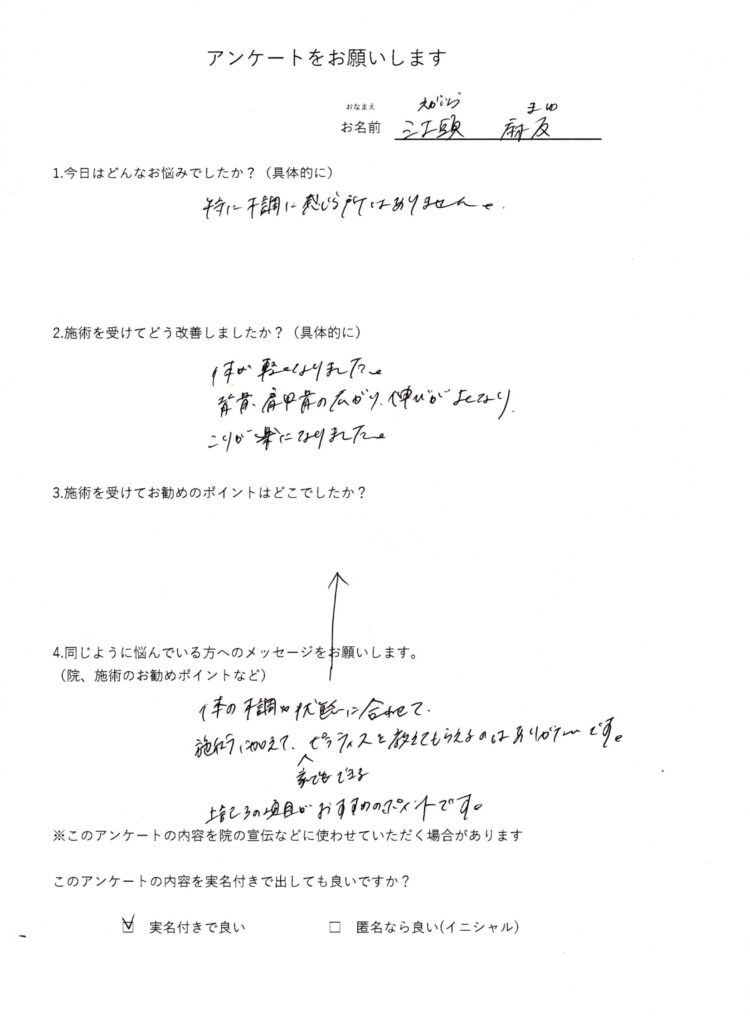 アンケートをお願いします
おなまえ えがしら まゆ
お名前 江頭 麻友
1.今日はどんなお悩みでしたか？（具体的に）
特に不調に感じる所はありません。
2.施術を受けてどう改善しましたか？（具体的に）
体が軽くなりました。
背骨、肩甲骨の広がり、伸びがよくなり、
こりが楽になりました。
3.施術を受けてお勧めのポイントはどこでしたか？
4.同じように悩んでいる方へのメッセージをお願いします。
（院、施術のお勧めポイントなど）
体の不調や状態に合わせて、
施術に加えて、ピラティスを教えてもらえるのはありがたいです。
家でもできる
上ころの項目がおすすめのポイントです。
※このアンケートの内容を院の宣伝などに使わせていただく場合があります
このアンケートの内容を実名付きで出しても良いですか？
☑ 実名付きで良い □ 匿名なら良い(イニシャル)